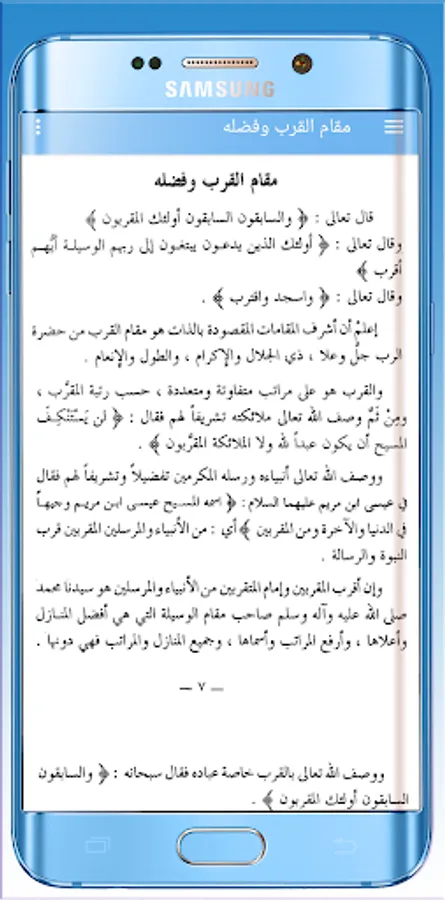 SAMSUNG
مقام القرب وفضله
مقام القرب وفضله
قال تعالى : ﴿ والسابقون السابقون أولئك المقربون ﴾
وقال تعالى : ﴿ أولئك الذين يدعون يبتغون إلى ربهم الوسيلة أيّهم
أقرب ﴾
وقال تعالى : ﴿ واسجد واقترب ﴾ .
إعلم أن أشرف المقامات المقصودة بالذات هو مقام القرب من حضرة
الرب جلّ وعلا ، ذي الجلال والإكرام ، والطول والإنعام .
والقرب هو على مراتب متفاوتة ومتعددة ، حسب رتبة المقرَّب ،
ومِنْ ثَمَّ وصف الله تعالى ملائكته تشريفاً لهم فقال : ﴿ لن يَسْتَنْكِفَ
المسيح أن يكون عبداً لله ولا الملائكة المقرَّبون ﴾ .
ووصف الله تعالى أنبياءه ورسله المكرمين تفضيلاً وتشريفاً لهم فقال
في عيسى ابن مريم عليهما السلام : ﴿ اسمه المسيح عيسى ابن مريم وجيهاً
في الدنيا والآخرة ومن المقربين ﴾ أي : من الأنبياء والمرسلين المقربين قرب
النبوة والرسالة .
وإن أقرب المقربين وإمام المتقربين من الأنبياء والمرسلين هو سيدنا محمد
صلى الله عليه وآله وسلم صاحب مقام الوسيلة التي هي أفضل المنازل
وأعلاها ، وأرفع المراتب وأسماها ، وجميع المنازل والمراتب فهي دونها .
— ٧ —
ووصف الله تعالى بالقرب خاصة عباده فقال سبحانه : ﴿ والسابقون
السابقون أولئك المقربون ﴾ .